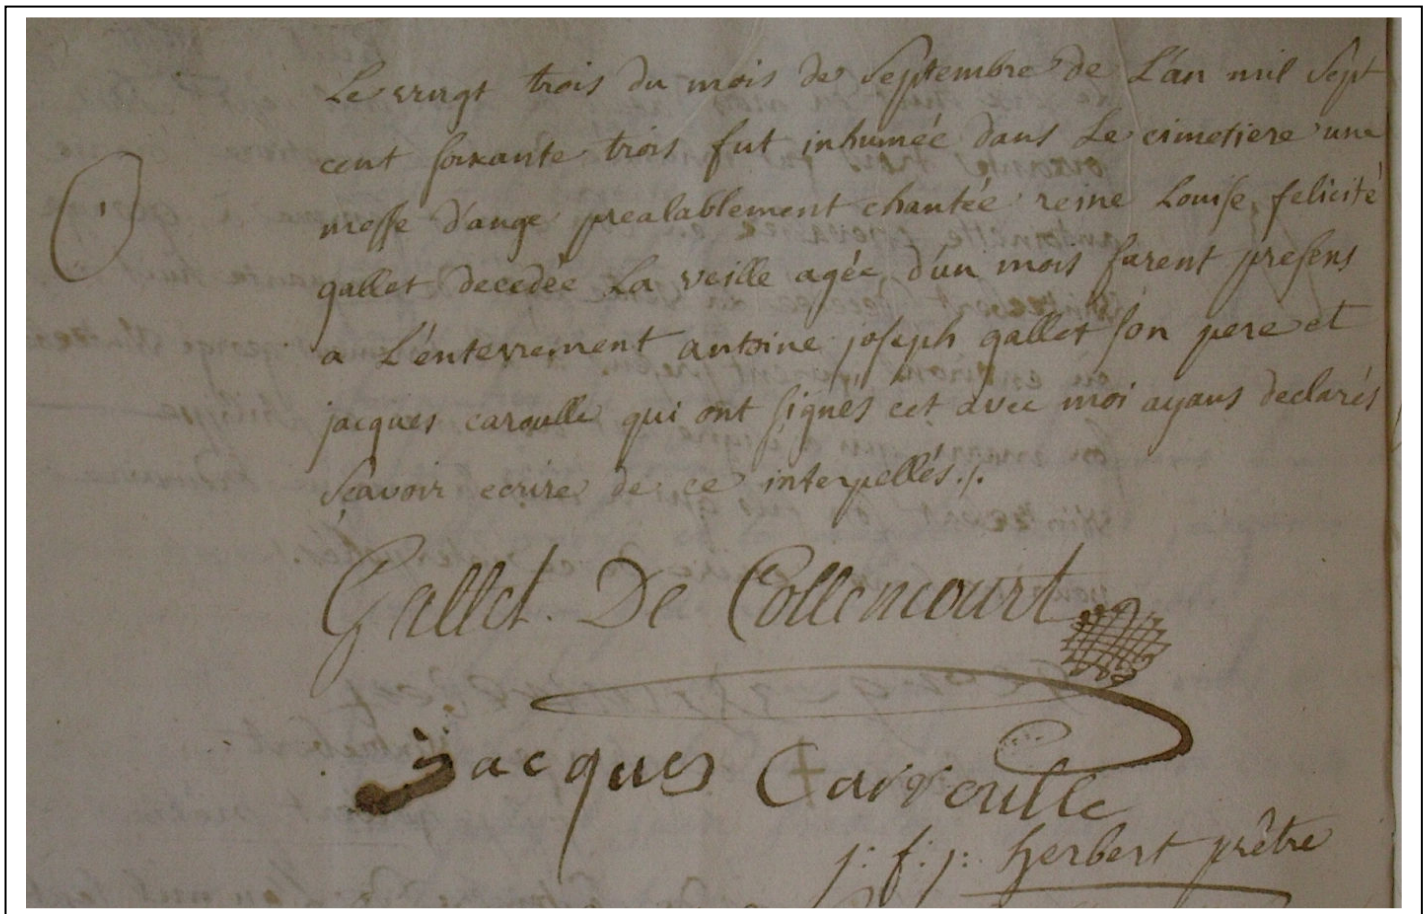 Le vingt trois du mois de Septembre de L'an mil Sept
cent soixante trois fut inhumée dans Le cimetiere une
messe d'ange prealablement chantée reine Louise, felicité
gallet decedée La veille agée d'un mois furent presens
a L'enterrement antoine joseph gallet son pere et
jacques caroulle qui ont signés cet avec moi ayans declarés
Scavoir ecrire de ce interpellés./.
Gallet De Collencourt
Jacques Carroulle
j: f: j: herbert prêtre